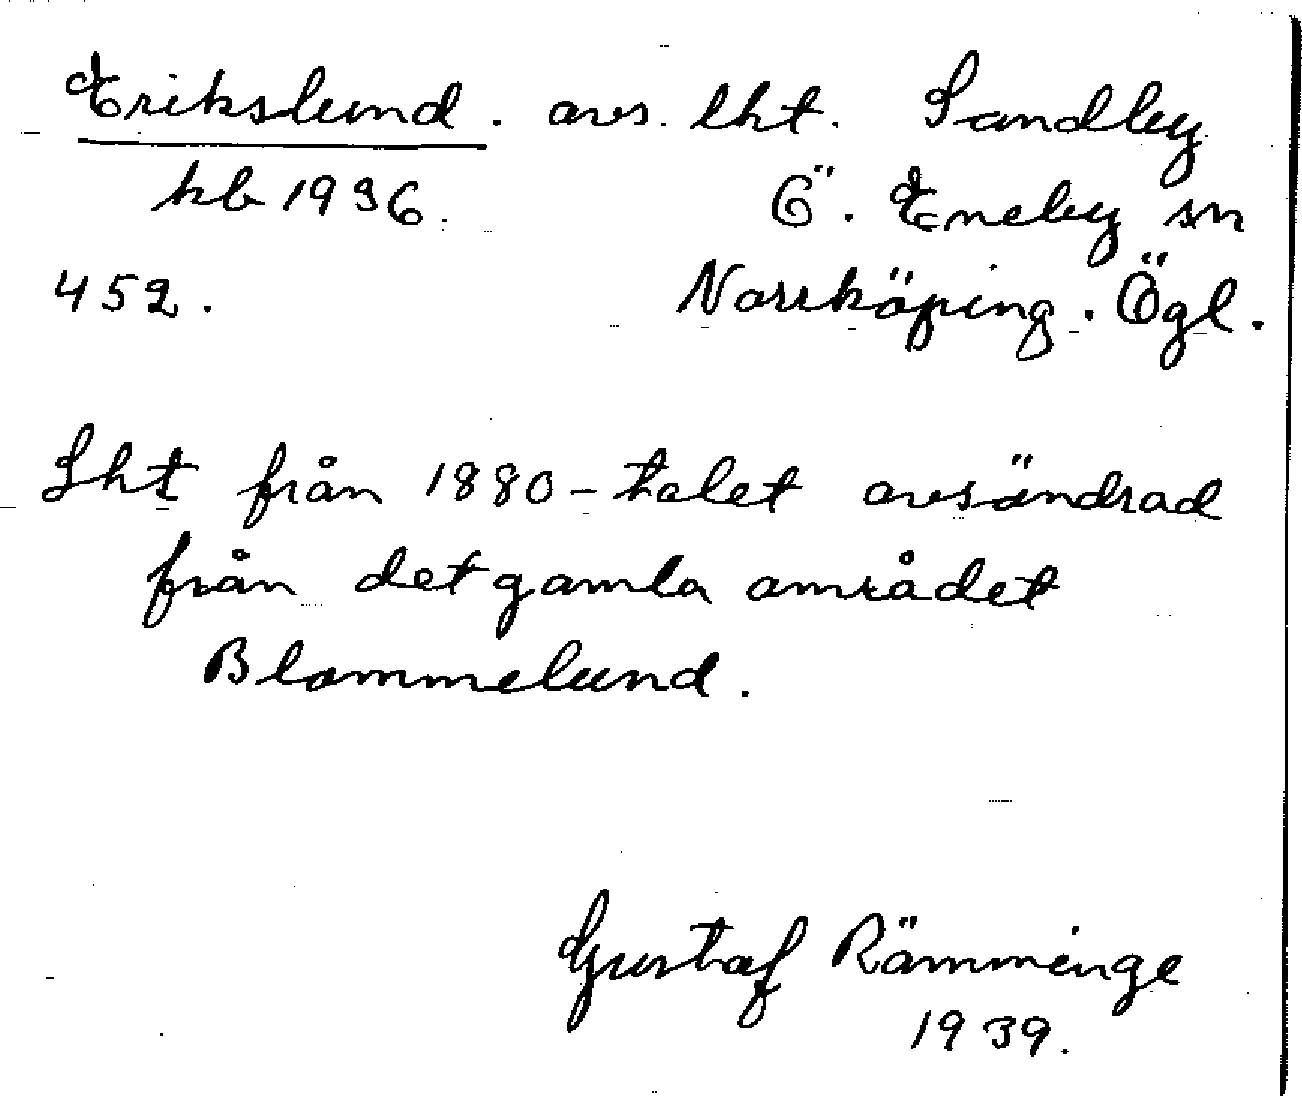 Erikslund. avs. lht. Sandby
kb 1936. Ö. Eneby sn
452. Norrköping. Ögl.
Lht från 1880-talet avsöndrad
från det gamla området
Blommelund.
Gustaf Rämminge
1939.